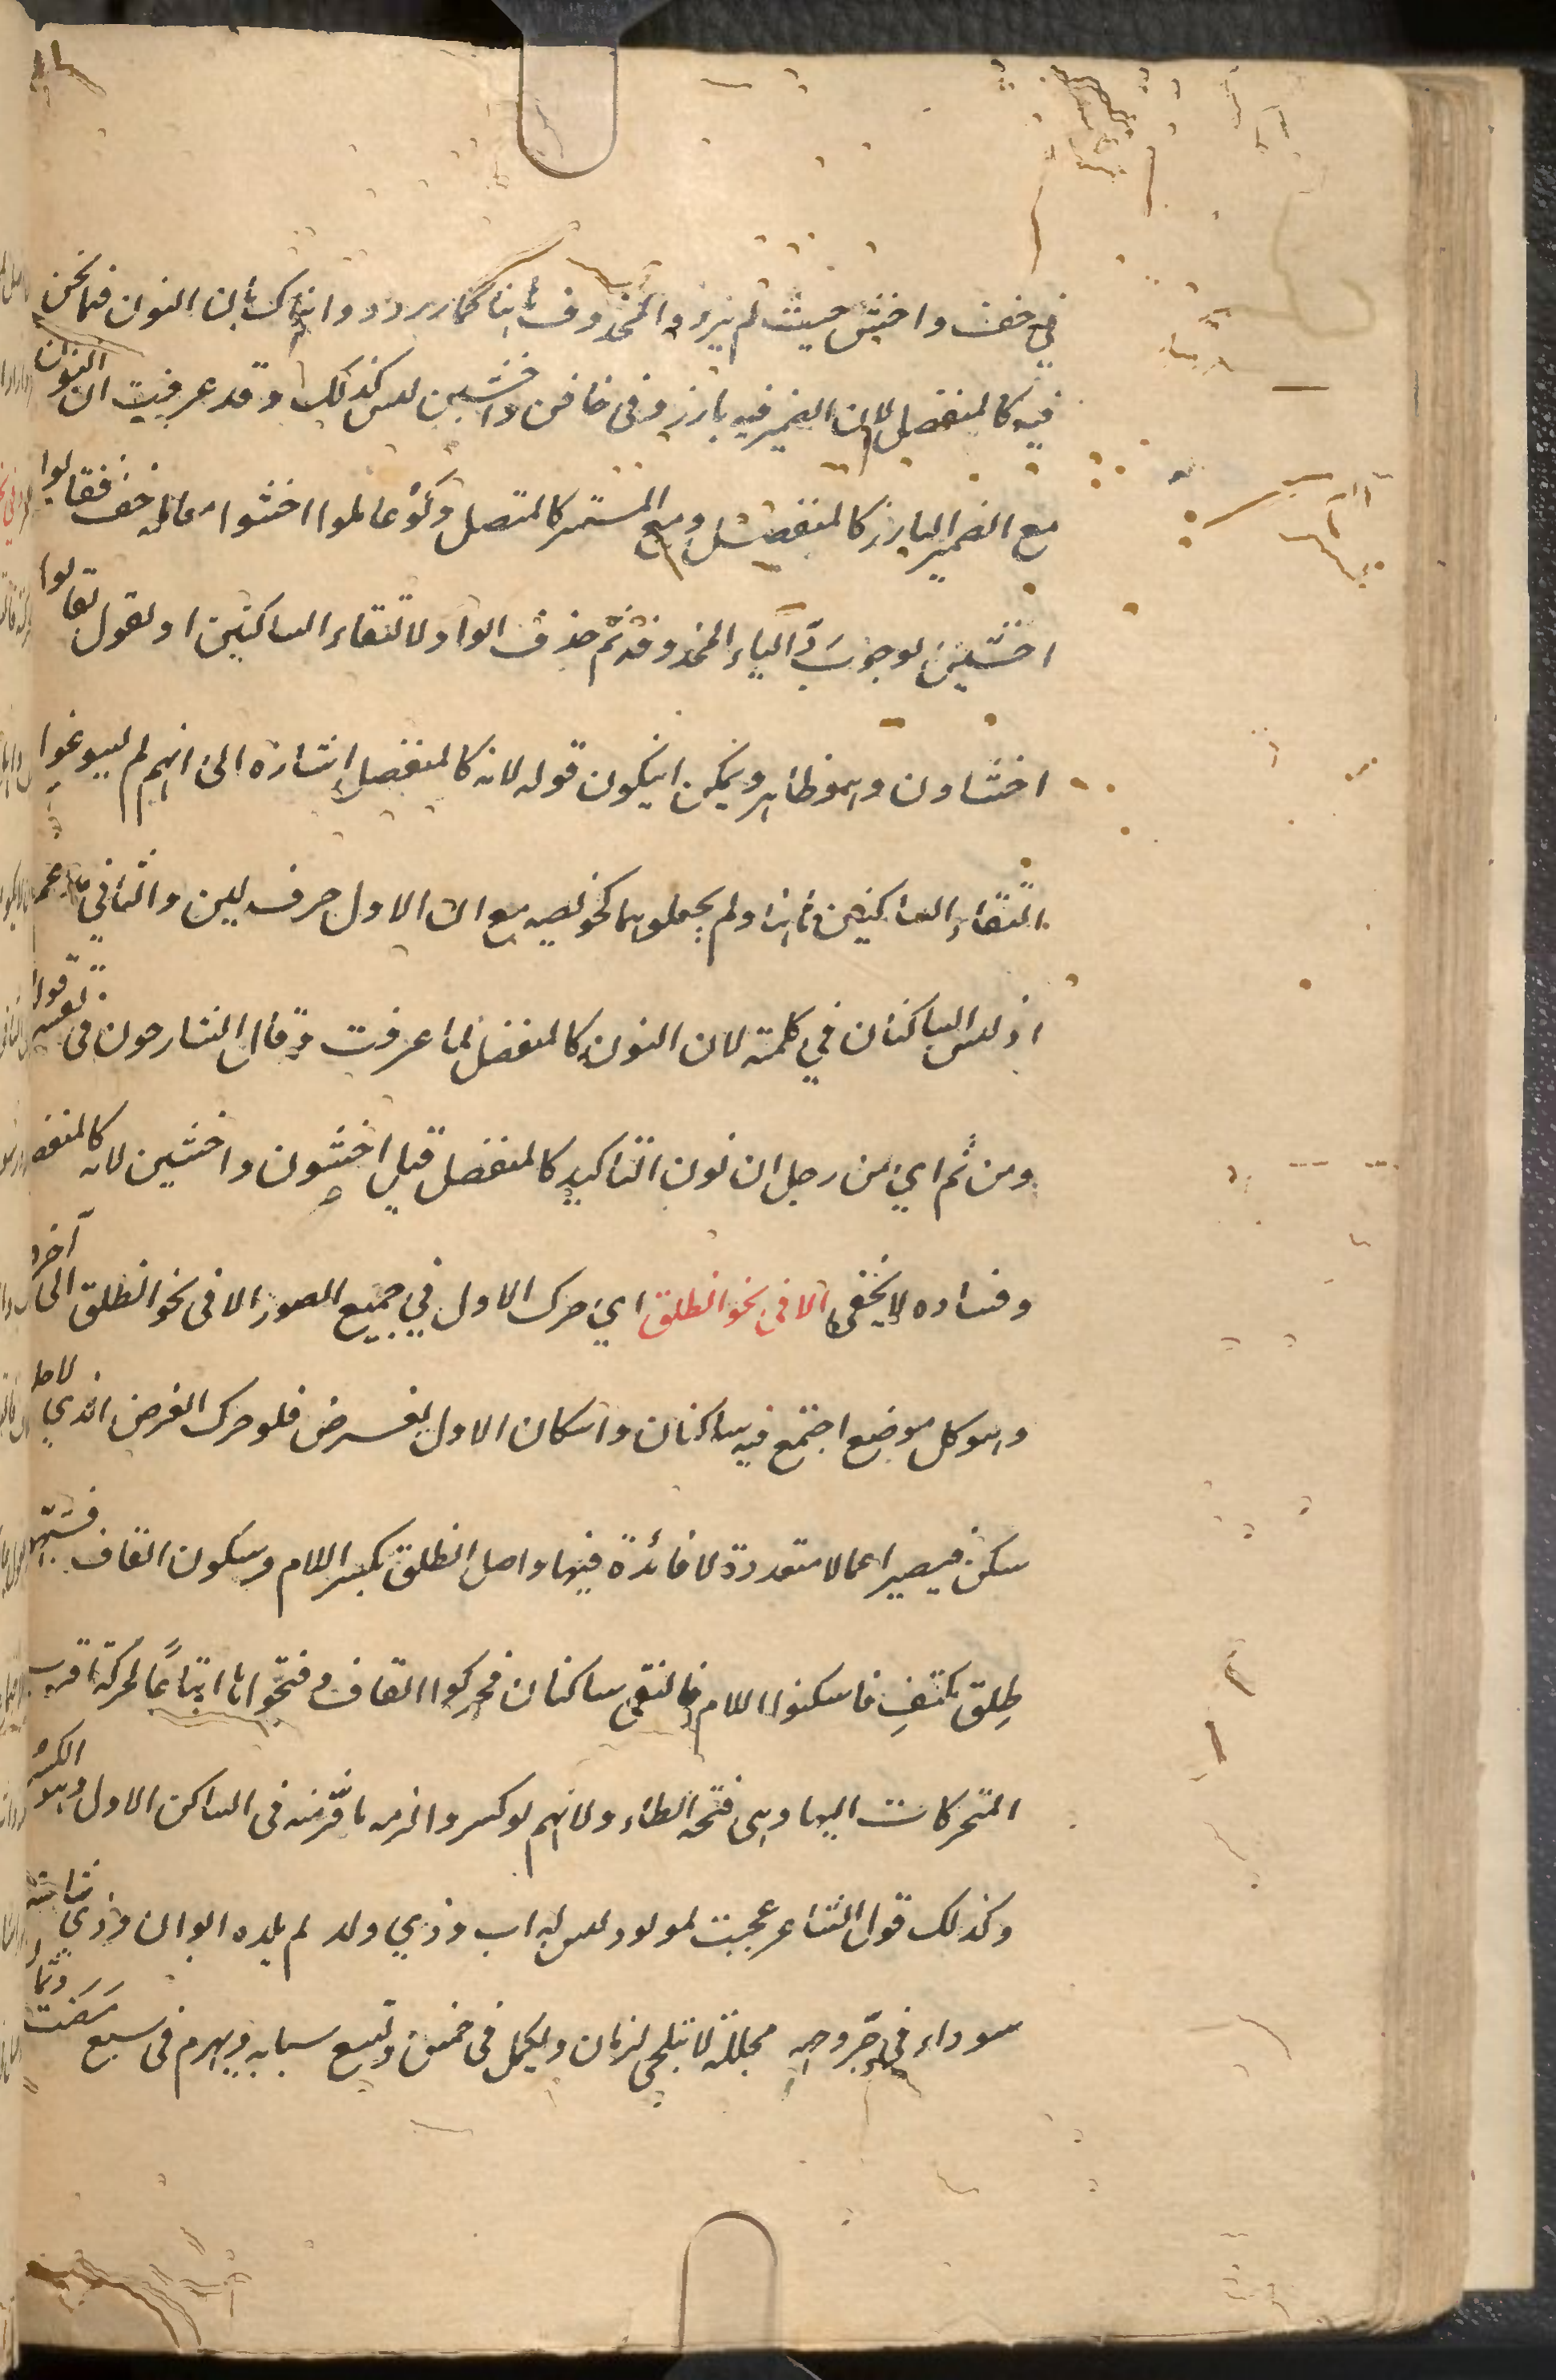 في خف واخش حيث لم يرد والمحذوف ههنا كما رد وانما ذلك بان النون فيما نحن
فيه كالمنفصل لان الضمير فيه بارز وفى خافن واخشين ليس كذلك وقد عرفت ان النون
مع الضمير البارز كالمنفصل ومع المستتر كالمتصل ولو عاملوا اخشوا معاملة خف فقالوا
اخشين لوجوب رد الياء المحذوفة ثم حذف الواو لالتقاء الساكنين او لقول لقالوا
اخشاون وهو ظاهر ويمكن ان يكون قوله لانه كالمنفصل اشارة الى انهم لم يسوغوا
التقاء الساكنين ههنا ولم يجعلوهما كخويصة مع ان الاول حرف لين والثاني مدغم
اذ ليس الساكنان في كلمة لان النون كالمنفصل لما عرفت وقال الشارحون فى تفسير قوله
ومن ثم اي من اجل ان نون التاكيد كالمنفصل قيل اخشون واخشين لانه كالمنفصل
وفساده لا يخفى الا فى نحو انطلق اي حرك الاول في جميع الصور الا فى نحو انطلق الى آخره
وهو كل موضع اجتمع فيه ساكنان واسكان الاول لغرض فلو حرك الغرض الذي لاجله
سكن فيصير اعمالا متعددة لا فائدة فيها واصل انطلق بكسر اللام وسكون القاف فشبه
طلق بكتف فاسكنوا اللام فالتقى ساكنان فحركوا القاف وفتحوها اتباعًا لحركة اقرب
المتحركات اليها وهى فتحة الطاء ولانهم لو كسروا لزمه ما فر منه فى الساكن الاول وهو الكسر
وكذلك قول الشاعر عجبت لمولود ليس له اب وذي ولد لم يلده ابوان وذي شامة
سوداء في حر وجهه مجللة لا تنجلى لزمان ويكمل فى خمس وتسع شبابه ويهرم فى سبع مضت وثمان